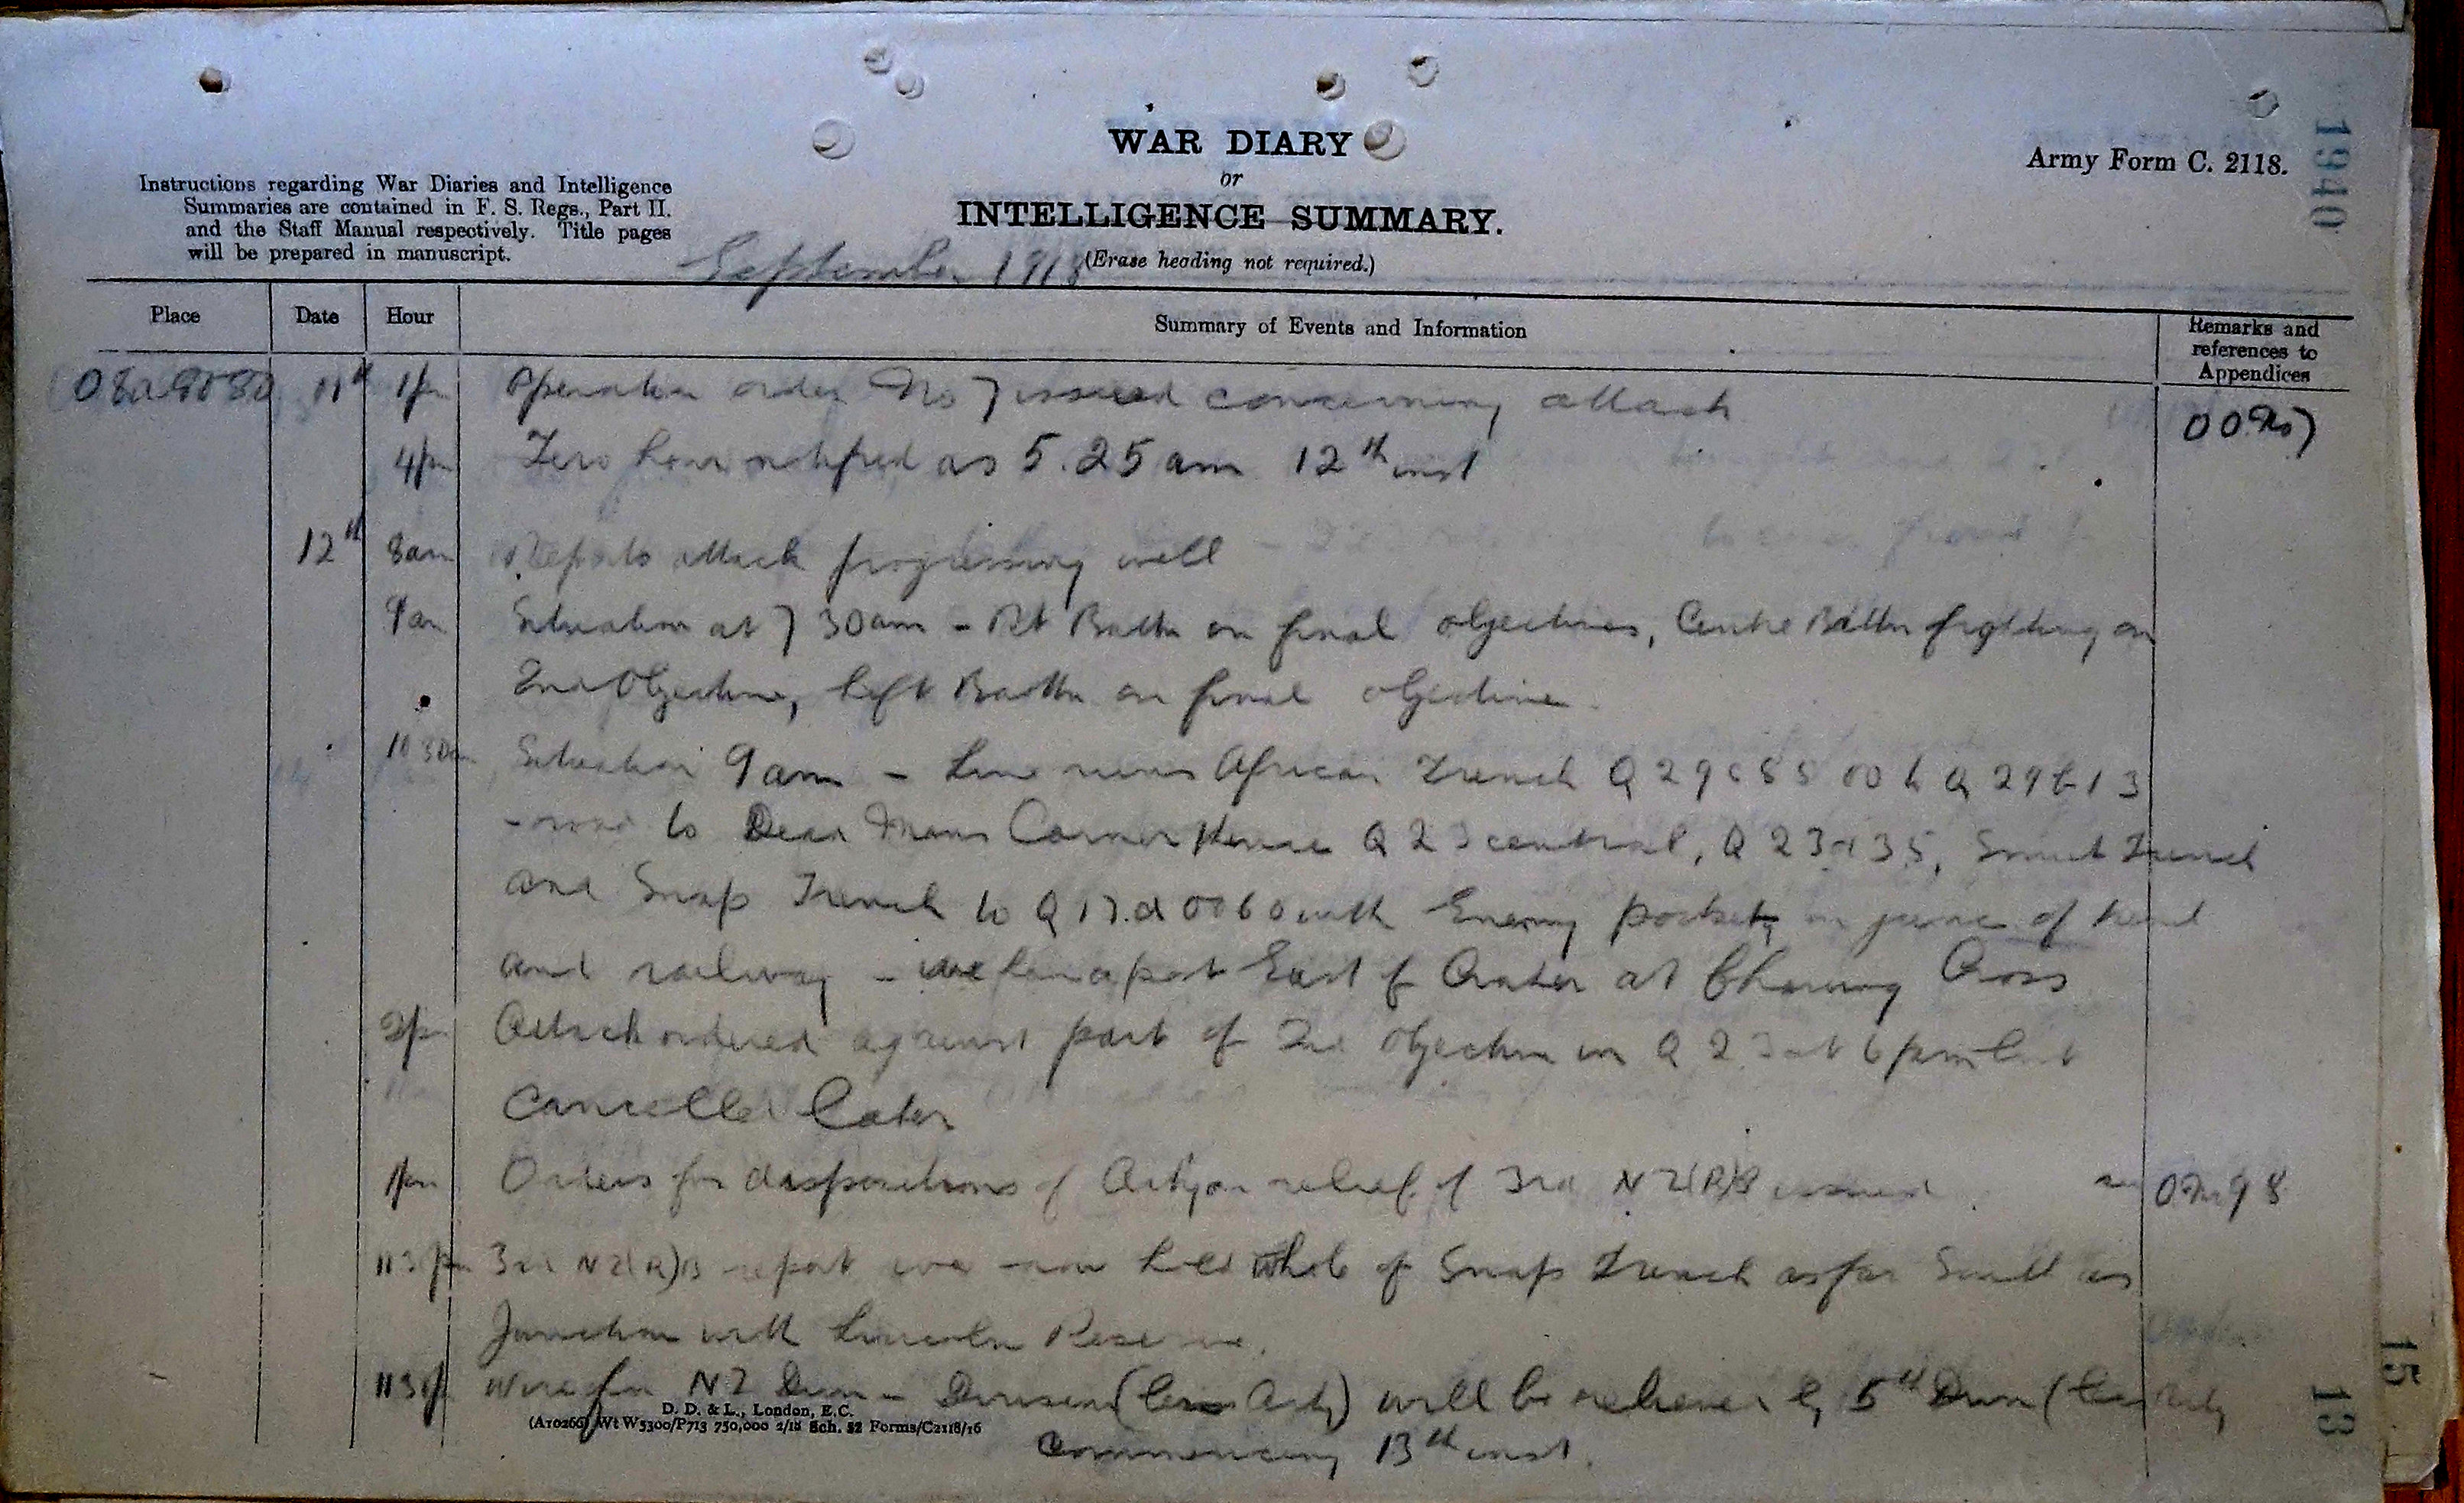 WAR DIARY
or
INTELLIGENCE SUMMARY.
(Erase heading not required.)
Army Form C. 2118.
1940
Instructions regarding War Diaries and Intelligence
Summaries are contained in F. S. Regs., Part II.
and the Staff Manual respectively. Title pages
will be prepared in manuscript.
September 1918
Place Date Hour Summary of Events and Information Remarks and
references to
Appendices
11th 1pm Operation order No 7 issued concerning attack OO No 7
4pm Zero hour notified as 5.25 am 12th inst
12th 8am Reports attack progressing well
9am Situation at 7 30am - Rt Battn on final objectives, Centre Battn fighting on
2nd Objective, left Battn on final objective
10 30am Situation 9am - Line runs African Trench Q 29 c 85 00 to Q 29 b 1 3
to Dead Mans Corner thence Q 23 central, Q 23 d 35, Smut Trench
and Snap Trench to Q 17.d 00 60 with Enemy pockets in of trench
and railway - we have a post East of Crater at Charing Cross
2pm Attack ordered against part of 2nd Objective in Q 23 at 6pm but
cancelled later
Orders for dispositions of Arty on relief of 3rd NZ(R)B issued
3rd NZ(R)B report we now hold whole of Snap Trench as far South as
Junction with Lincoln Reserve.
Wire from NZ Divn - Division (less Arty) will be relieved by 5th Divn (less Arty
commencing 13th inst.
D. D. & L., London, E.C.
(A10266) Wt W5300/P713 750,000 2/18 Sch. 52 Forms/C2118/16
15
13